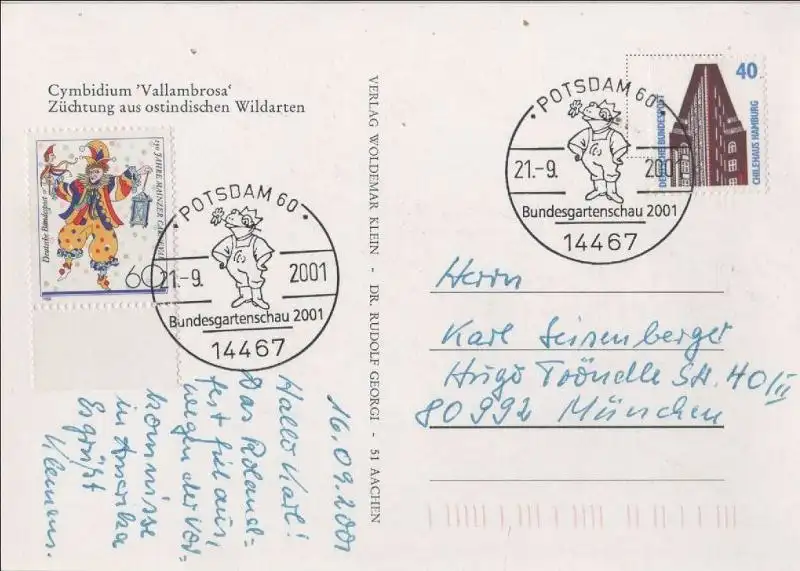 Cymbidium 'Vallambrosa'
Züchtung aus ostindischen Wildarten
Deutsche Bundespost
150 JAHRE MAINZER
60
POTSDAM 60
21.-9. 2001
Bundesgartenschau 2001
14467
VERLAG WOLDEMAR KLEIN - DR. RUDOLF GEORGI - 51 AACHEN
POTSDAM 60
21.-9. 2001
Bundesgartenschau 2001
14467
40
DEUTSCHE BUNDESPOST
CHILEHAUS HAMBURG
Herrn
Karl Seisenberger
Hugo Tröndle Str. 40/II
80992 München
16.09.2001
Hallo Karl!
Das Roland-
fest fiel aus,
wegen der Vor-
kommnisse
in Amerika
Es grüßt
Klemens.